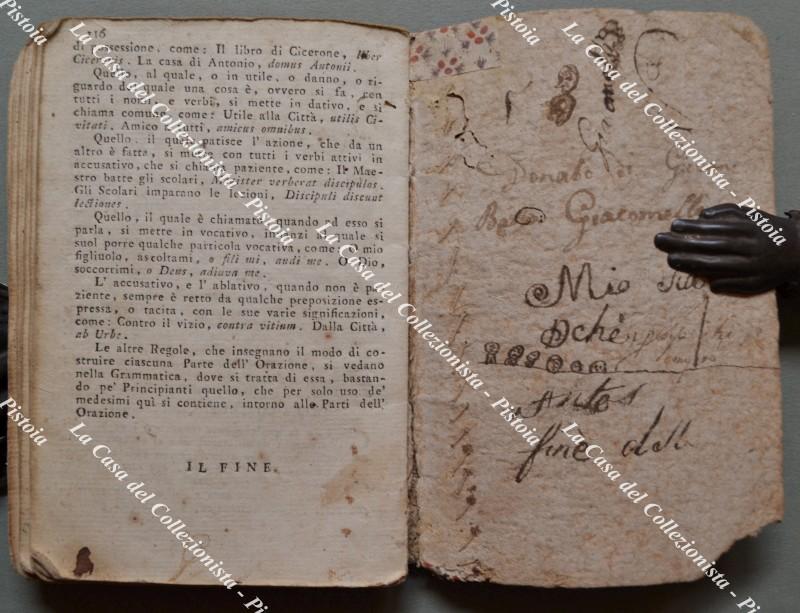 116
di possessione, come: Il libro di Cicerone, liber
Ciceronis. La casa di Antonio, domus Antonii.
Quello, al quale, o in utile, o danno, o ri-
guardo del quale una cosa è, ovvero si fa, con
tutti i nomi, e verbi, si mette in dativo, e si
chiama comune, come: Utile alla Città, utilis Ci-
vitati. Amico a tutti, amicus omnibus.
Quello, il quale patisce l'azione, che da un
altro è fatta, si mette con tutti i verbi attivi in
accusativo, che si chiama paziente, come: Il Mae-
stro batte gli scolari, Magister verberat discipulos.
Gli Scolari imparano le lezioni, Discipuli discunt
lectiones.
Quello, il quale è chiamato, quando ad esso si
parla, si mette in vocativo, innanzi al quale si
suol porre qualche particola vocativa, come: O mio
figliuolo, ascoltami, o fili mi, audi me. O Dio,
soccorrimi, o Deus, adiuva me.
L' accusativo, e l' ablativo, quando non è pa-
ziente, sempre è retto da qualche preposizione es-
pressa, o tacita, con le sue varie significazioni,
come: Contro il vizio, contra vitium. Dalla Città,
ab Urbe.
Le altre Regole, che insegnano il modo di co-
struire ciascuna Parte dell' Orazione, si vedano
nella Grammatica, dove si tratta di essa, bastando
pe' Principianti quello, che per solo uso de'
medesimi qui si contiene, intorno alle Parti dell'
Orazione.
IL FINE.
Donato di
Giacomelli
Mio
Dchè
Antos
fine dell
La Casa del Collezionista - Pistoia